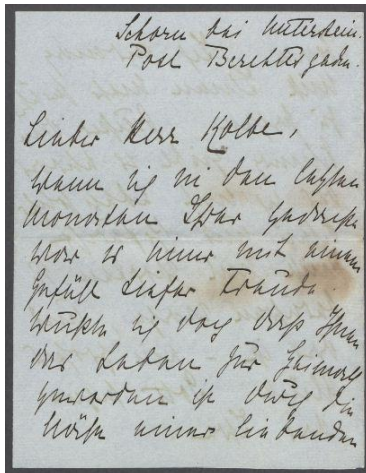 Schorn bei Unterstein.
Post Berchtesgaden.
Lieber Herr Kolbe,
wenn ich in den letzten
Monaten Ihrer gedachte
war es immer mit einem
Gefühl tiefer Freude.
Wußte ich doch daß Ihnen
das Leben zur Heimat
geworden ist durch die
Nähe eines liebenden